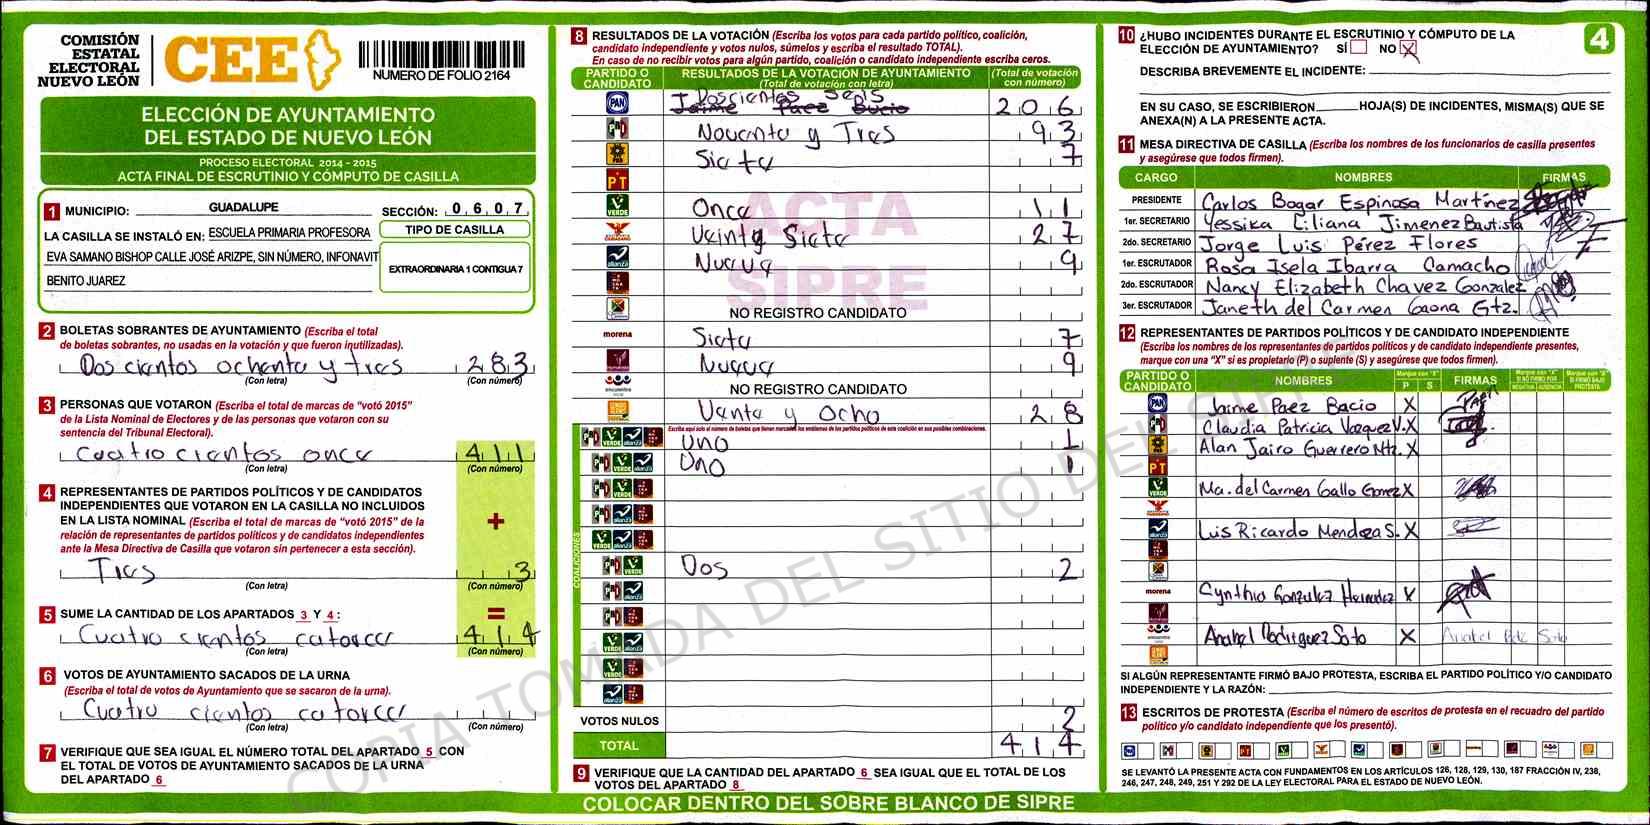 COMISIÓN
ESTATAL
ELECTORAL
NUEVO LEÓN
CEE
NUMERO DE FOLIO 2164
ELECCIÓN DE AYUNTAMIENTO
DEL ESTADO DE NUEVO LEÓN
PROCESO ELECTORAL 2014 - 2015
ACTA FINAL DE ESCRUTINIO Y CÓMPUTO DE CASILLA
1 MUNICIPIO: GUADALUPE SECCIÓN: 0 6 0 7
LA CASILLA SE INSTALÓ EN: ESCUELA PRIMARIA PROFESORA
EVA SAMANO BISHOP CALLE JOSÉ ARIZPE, SIN NÚMERO, INFONAVIT
BENITO JUAREZ
TIPO DE CASILLA
EXTRAORDINARIA 1 CONTIGUA 7
2 BOLETAS SOBRANTES DE AYUNTAMIENTO (Escriba el total
de boletas sobrantes, no usadas en la votación y que fueron inutilizadas).
Dos cientos ochenta y tres 283
(Con letra) (Con número)
3 PERSONAS QUE VOTARON (Escriba el total de marcas de “votó 2015”
de la Lista Nominal de Electores y de las personas que votaron con su
sentencia del Tribunal Electoral).
Cuatro cientos once 411
(Con letra) (Con número)
4 REPRESENTANTES DE PARTIDOS POLÍTICOS Y DE CANDIDATOS
INDEPENDIENTES QUE VOTARON EN LA CASILLA NO INCLUIDOS
EN LA LISTA NOMINAL (Escriba el total de marcas de “votó 2015” de la
relación de representantes de partidos políticos y de candidatos independientes
ante la Mesa Directiva de Casilla que votaron sin pertenecer a esta sección).
+
Tres 3
(Con letra) (Con número)
5 SUME LA CANTIDAD DE LOS APARTADOS 3 Y 4 :
=
Cuatro cientos catorce 414
(Con letra) (Con número)
6 VOTOS DE AYUNTAMIENTO SACADOS DE LA URNA
(Escriba el total de votos de Ayuntamiento que se sacaron de la urna).
Cuatro cientos catorce
(Con letra) (Con número)
7 VERIFIQUE QUE SEA IGUAL EL NÚMERO TOTAL DEL APARTADO 5 CON
EL TOTAL DE VOTOS DE AYUNTAMIENTO SACADOS DE LA URNA
DEL APARTADO 6
8 RESULTADOS DE LA VOTACIÓN (Escriba los votos para cada partido político, coalición,
candidato independiente y votos nulos, súmelos y escriba el resultado TOTAL).
En caso de no recibir votos para algún partido, coalición o candidato independiente escriba ceros.
PARTIDO O CANDIDATO
RESULTADOS DE LA VOTACIÓN DE AYUNTAMIENTO
(Total de votación con letra)
(Total de votación con número)
PAN Doscientos seis 206
Jaime Paez Bacio
PRI Noventa y Tres 93
PRD Siete 7
PT
VERDE Once 11
Veinty Siete 27
alianza Nueve 9
NO REGISTRO CANDIDATO
morena Siete 7
Nueve 9
encuentro social NO REGISTRO CANDIDATO
Vente y Ocho 28
Escriba aquí solo el número de boletas que tienen marcados los emblemas de los partidos políticos de esta coalición en sus posibles combinaciones.
COALICIONES
Uno 1
Uno 1
Dos 2
VOTOS NULOS 2
TOTAL 414
9 VERIFIQUE QUE LA CANTIDAD DEL APARTADO 6 SEA IGUAL QUE EL TOTAL DE LOS
VOTOS DEL APARTADO 8
ACTA
SIPRE
COPIA TOMADA DEL SITIO DEL SIPRE
COLOCAR DENTRO DEL SOBRE BLANCO DE SIPRE
10 ¿HUBO INCIDENTES DURANTE EL ESCRUTINIO Y CÓMPUTO DE LA
ELECCIÓN DE AYUNTAMIENTO? SÍ NO X
4
DESCRIBA BREVEMENTE EL INCIDENTE:
EN SU CASO, SE ESCRIBIERON HOJA(S) DE INCIDENTES, MISMA(S) QUE SE
ANEXA(N) A LA PRESENTE ACTA.
11 MESA DIRECTIVA DE CASILLA (Escriba los nombres de los funcionarios de casilla presentes
y asegúrese que todos firmen).
CARGO NOMBRES FIRMAS
PRESIDENTE Carlos Bogar Espinosa Martinez
1er. SECRETARIO Yessika Liliana Jimenez Bautista
2do. SECRETARIO Jorge Luis Pérez Flores
1er. ESCRUTADOR Rosa Isela Ibarra Camacho
2do. ESCRUTADOR Nancy Elizabeth Chavez Gonzalez
3er. ESCRUTADOR Janeth del Carmen Gaona Gtz.
12 REPRESENTANTES DE PARTIDOS POLÍTICOS Y DE CANDIDATO INDEPENDIENTE
(Escriba los nombres de los representantes de partidos políticos y de candidato independiente presentes,
marque con una “X” si es propietario (P) o suplente (S) y asegúrese que todos firmen).
PARTIDO O CANDIDATO NOMBRES Marque con "X" P S FIRMAS
Marque con "X" SI NO FIRMÓ POR NEGATIVA AUSENCIA
Marque con "X" SI FIRMÓ BAJO PROTESTA
PAN Jaime Paez Bacio X
PRI Claudia Patricia Vazquez V. X
PRD Alan Jairo Guerrero Ntz. X
PT
VERDE Ma. del Carmen Gallo Gomez X
alianza Luis Ricardo Mendoza S. X
morena Cynthia Gonzalez Hernandez X
Anabel Rodriguez Soto X Anabel Rdz Soto
SI ALGÚN REPRESENTANTE FIRMÓ BAJO PROTESTA, ESCRIBA EL PARTIDO POLÍTICO Y/O CANDIDATO
INDEPENDIENTE Y LA RAZÓN:
13 ESCRITOS DE PROTESTA (Escriba el número de escritos de protesta en el recuadro del partido
político y/o candidato independiente que los presentó).
SE LEVANTÓ LA PRESENTE ACTA CON FUNDAMENTOS EN LOS ARTÍCULOS 126, 128, 129, 130, 187 FRACCIÓN IV, 238,
246, 247, 248, 249, 251 Y 292 DE LA LEY ELECTORAL PARA EL ESTADO DE NUEVO LEÓN.